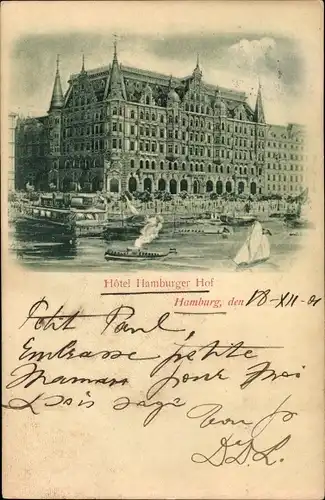 Hôtel Hamburger Hof
Hamburg, den 18-XII-01
Petit Paul,
Embrasse petite
Maman pour moi
& sois sage
Ton p
D.D.L.